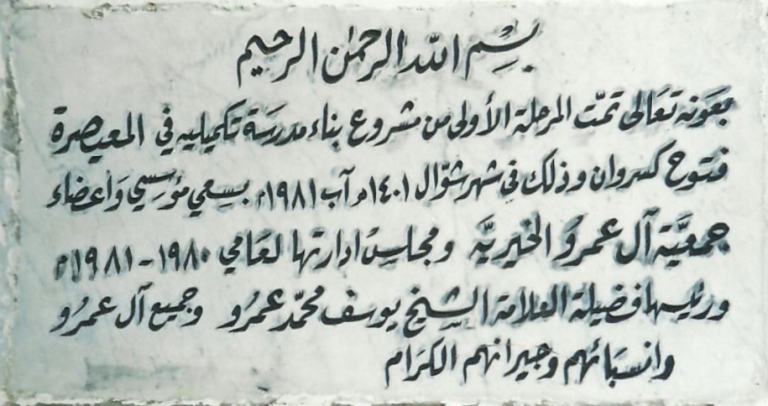 بسم الله الرحمن الرحيم
بعونه تعالى تمّت المرحلة الأولى من مشروع بناء مدرسة تكميليه في المعيصرة
فتوح كسروان وذلك في شهر شوّال ١٤٠١ه آب ١٩٨١م بسعي مؤسسي وأعضاء
جمعيّة آل عمرو الخيريّه ومجلس ادارتها لعامي ١٩٨٠-١٩٨١م
ورئيسها فضيلة العلامة الشيخ يوسف محمّد عمرو وجميع آل عمرو
وانسبائهم وجيرانهم الكرام